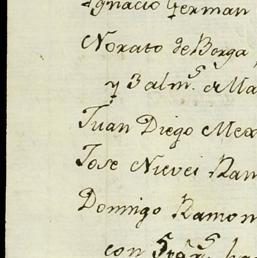 Ignacio German
Norato de Borga
y 3 alm.s de Ma
Juan Diego Mex
Jose Nievei Ram
Domingo Ramon
con 5